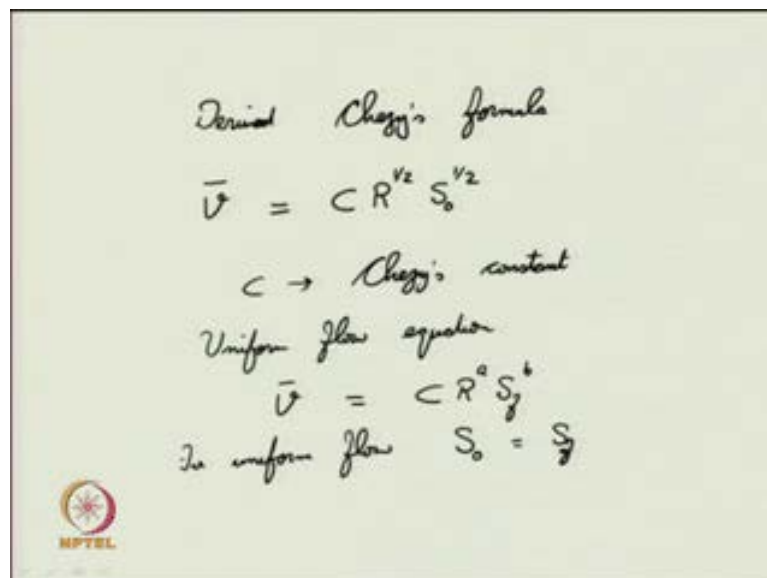 Derived Chezy's formula
v̄ = C R^1/2 S₀^1/2
C → Chezy's constant
Uniform flow equation
v̄ = C R^a S_f^b
In uniform flow S₀ = S_f
NPTEL